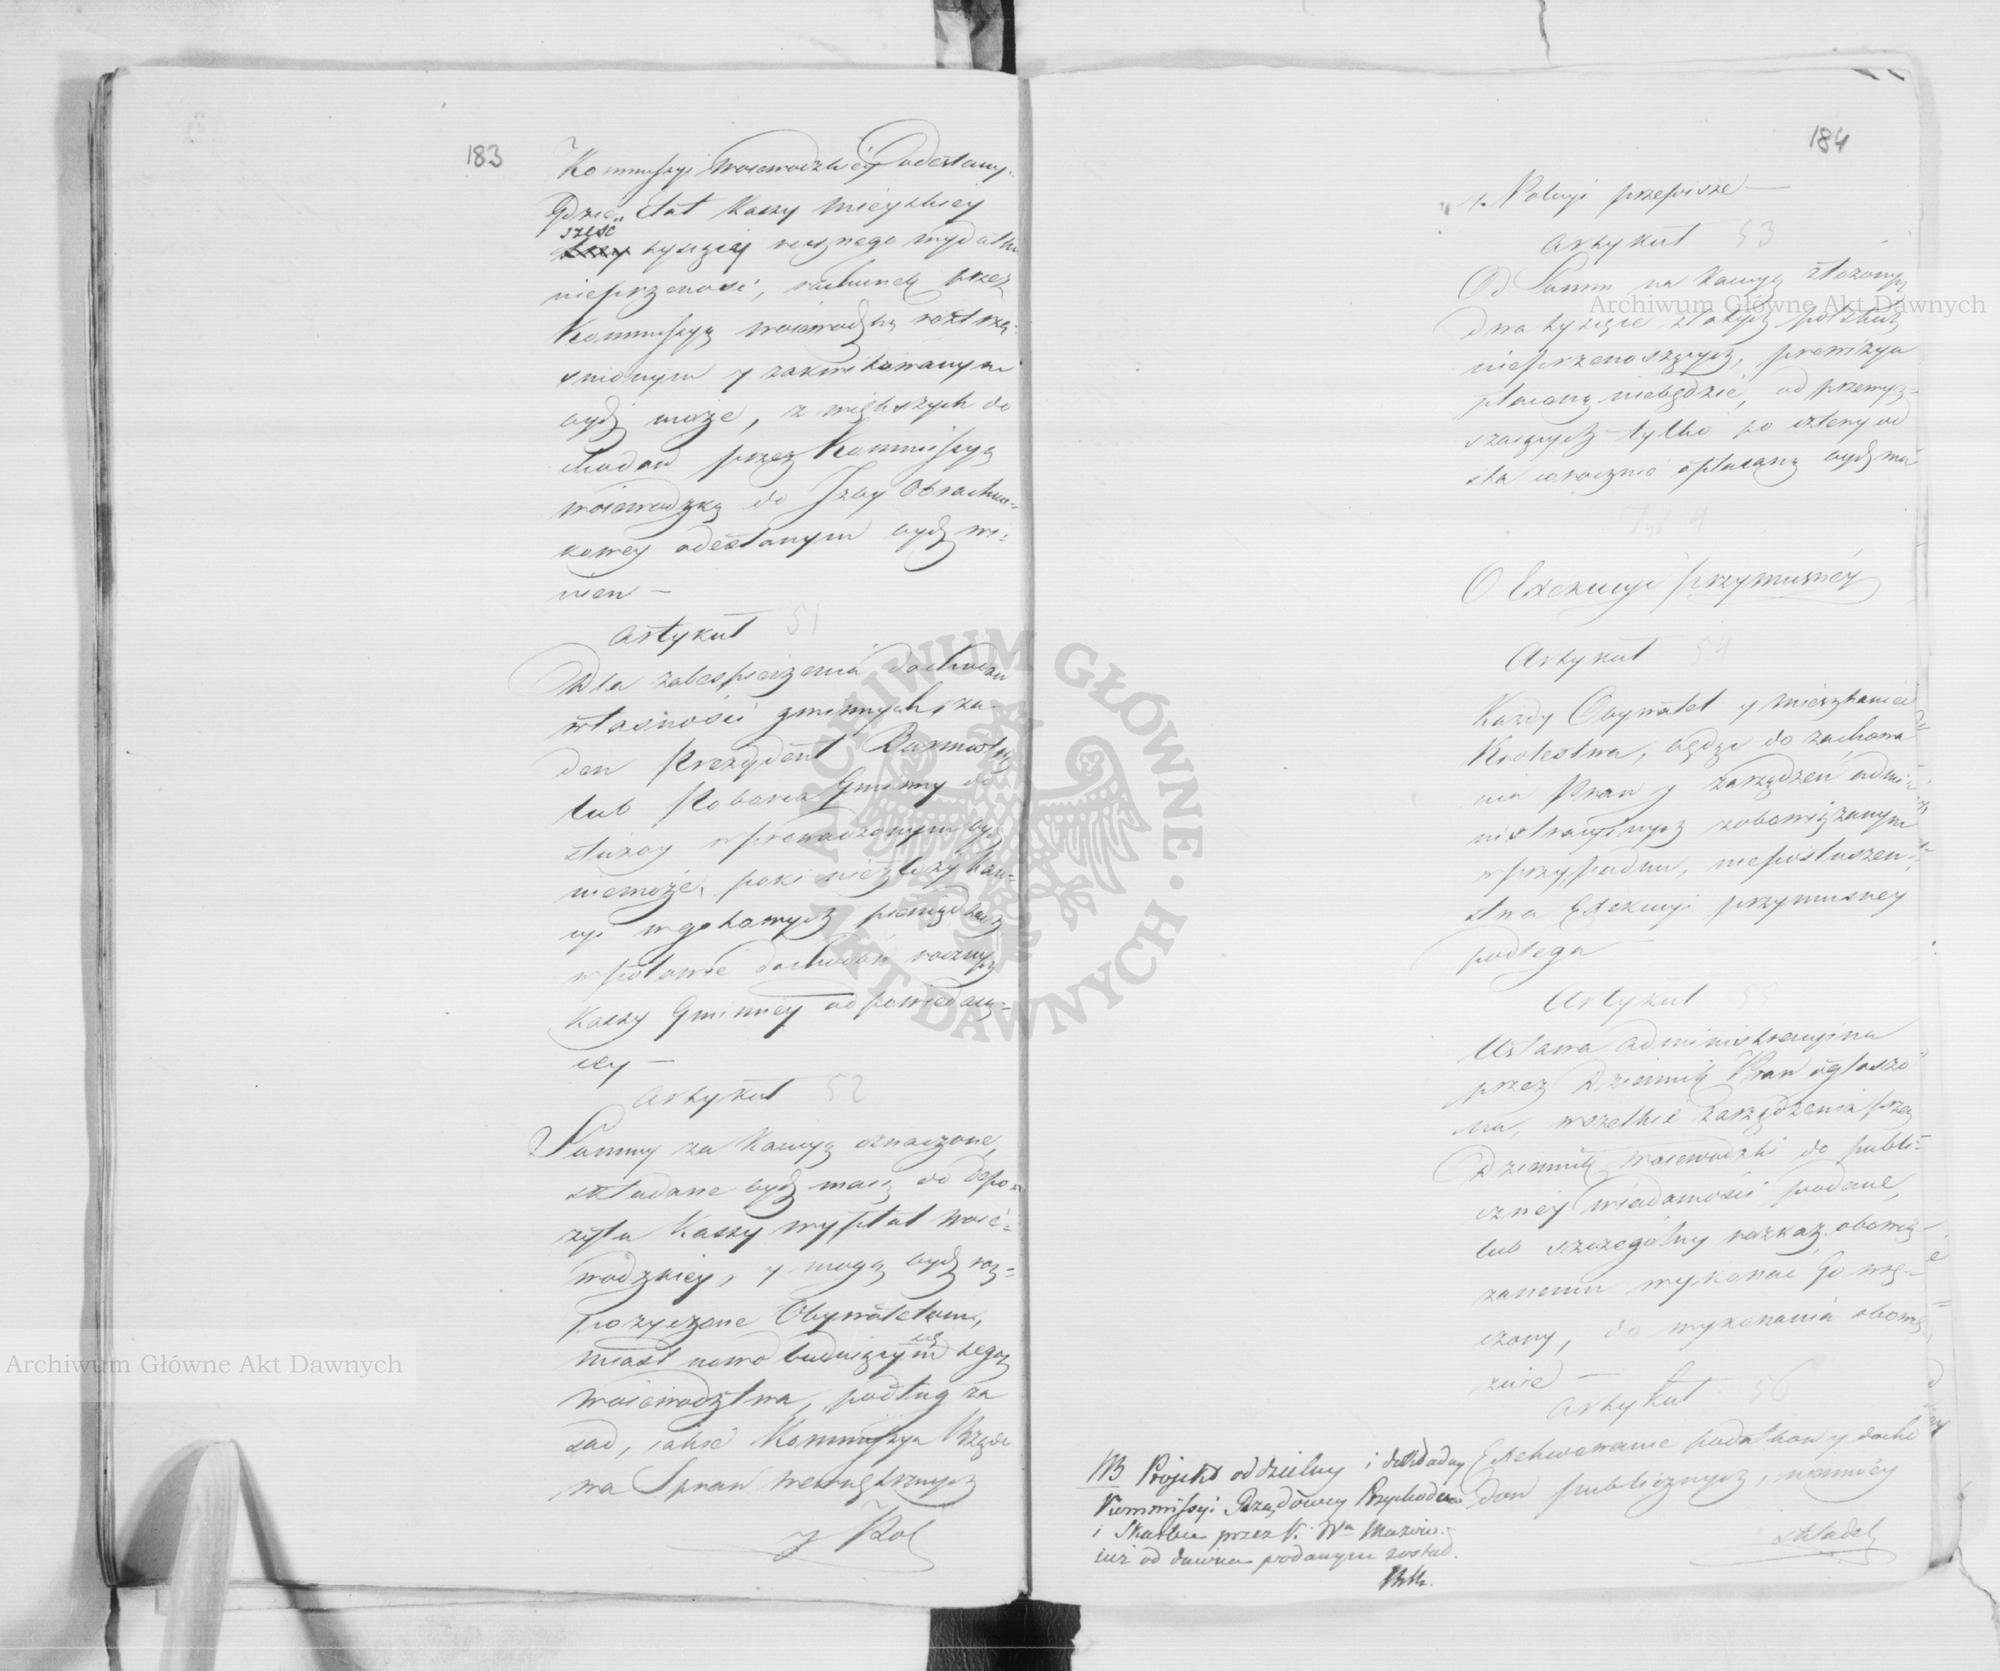 183
Kommissyi Woiewodzkiey odesłany.
Gdzie Etat Kassy Mieyskiey
sześć
tysięcy rocznego wydatku
nieprzenosi, rachunek przez
Kommissyą Woiewodzką roztrzą-
śnionym y zakwitowanym
bydź może, z większych do
chodów przez Kommissyą
Woiewodzką do Izby Obrachun-
kowey odesłanym bydź wi-
nien —
Artykuł 51
Dla zabespieczenia dochodów
własności gminnych, ża-
den Prezydent Burmistrz
lub Poborca Gminny do
służby wprowadzonym bydź
niemoże, poki niezłoży Kau-
cyi w gotowych pieniądzach
w połowie dochodów rocznych
Kassy Gminney odpowiedaią-
cey —
Artykuł 52
Summy za Kaucyą oznaczone,
składane bydź maią do depo-
zytu Kassy wypłat Woie-
wodzkiey, y mogą bydź roz-
pożyczone Obywatelom,
się
miast nowo buduiącym tegoż
Woiewodztwa, podług za
sad, iakie Kommissya Rządo
wa Spraw Wewnętrznych
y Pol
184
y Policyi przepisze —
Artykuł 53
Od Summ na Kaucyą złożonych
dwa tysiące złotych polskich
nieprzenoszących, prowizya
płaconą niebędzie, od przewyż-
szaiących tylko po cztery od
sta corocznie opłacaną bydź ma
O Exekucyi przymusney
Artykuł 54
Każdy Obywatel y Mieszkaniec
Krolestwa, będąc do zachowa
nia Praw y zarządzeń admi-
nistracyinych zobowiązanym
w przypadku, nieposłuszeń-
stwa Exekucyi przymusney
podlega —
Artykuł 55
Ustawa administracyina
przez Dziennik Praw ogłoszo
na, wszelkie zarządzenia przez
Dziennik Woiewodzki do publi-
czney wiadomości podane,
lub szczególny rozkaz obowią-
zanemu wykonać go wrę-
czony, do wykonania obowią
zuie —
Artykuł 56
Exekwowanie podatkow y docho
dow publicznych, niemniey
składek
NB Projekt oddzielny i dokładny
Kommissyi Rządowey Przychodow
i Skarbu przez K. Wa Mazow.
iuż od dawna podanym został.
Archiwum Główne Akt Dawnych
Archiwum Główne Akt Dawnych
ARCHIWUM GŁÓWNE · AKT DAWNYCH ·